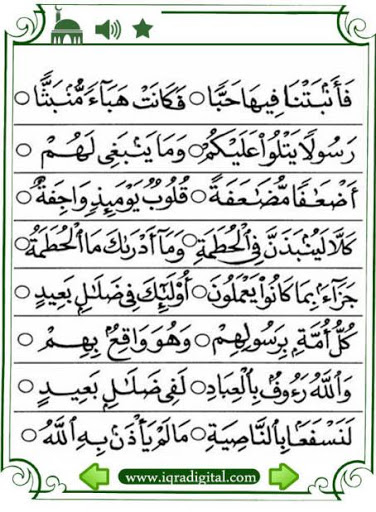 فَأَنْۢبَتْنَا فِيهَا حَبًّا ○ فَكَانَتْ هَبَآءً مُّنْۢبَثًّا ○
رَسُولًا يَتْلُوا۟ عَلَيْكُمْ ○ وَمَا يَنْۢبَغِى لَهُمْ ○
أَضْعَٰفًا مُّضَٰعَفَةً ○ قُلُوبٌ يَوْمَئِذٍ وَاجِفَةٌ ○
كَلَّا لَيُنْۢبَذَنَّ فِى الْحُطَمَةِ ○ وَمَآ أَدْرَىٰكَ مَا الْحُطَمَةُ ○
جَزَآءًۢ بِمَا كَانُوا۟ يَعْمَلُونَ ○ أُو۟لَٰٓئِكَ فِى ضَلَٰلٍۭ بَعِيدٍ ○
كُلُّ أُمَّةٍۭ بِرَسُولِهِمْ ○ وَهُوَ وَاقِعٌۢ بِهِمْ ○
وَاللَّهُ رَءُوفٌۢ بِالْعِبَادِ ○ لَفِى ضَلَٰلٍۭ بَعِيدٍ ○
لَنَسْفَعًۢا بِالنَّاصِيَةِ ○ مَا لَمْ يَأْذَنْۢ بِهِ اللَّهُ ○
www.iqradigital.com